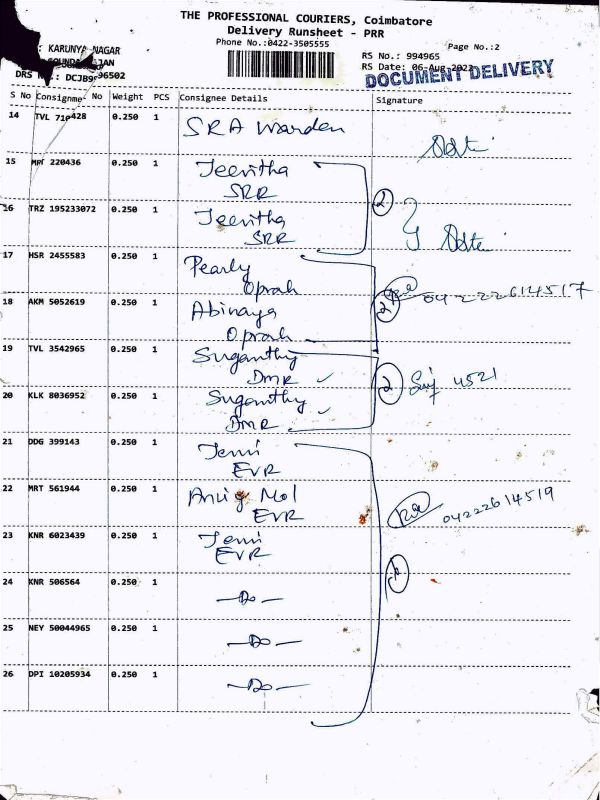 THE PROFESSIONAL COURIERS, Coimbatore
Delivery Runsheet - PRR
Phone No.:0422-3505555
Page No.:2
: KARUNYA NAGAR
RS No.: 994965
RS Date: 06-Aug-2022
DOCUMENT DELIVERY
S No Consignme No Weight PCS Consignee Details Signature
14 TVL 0.250 1 SRA Warden
15 220436 0.250 1 Jeevitha
SRR
2
16 TRZ 195233072 0.250 1 Jeevitha
SRR
17 HSR 2455583 0.250 1 Pearly
Oprah
2 04222614517
18 AKM 5052619 0.250 1 Abinaya
Oprah
19 TVL 3542965 0.250 1 Suganthy
DMR ✓
2 4521
20 KLK 8036952 0.250 1 Suganthy
DMR ✓
21 DDG 399143 0.250 1 Jemi
EVR
22 MRT 561944 0.250 1 Mol
EVR
04222614519
23 KNR 6023439 0.250 1 Jemi
EVR
24 KNR 506564 0.250 1 —Do—
25 NEY 50044965 0.250 1 —Do—
26 DPI 10205934 0.250 1 —Do—